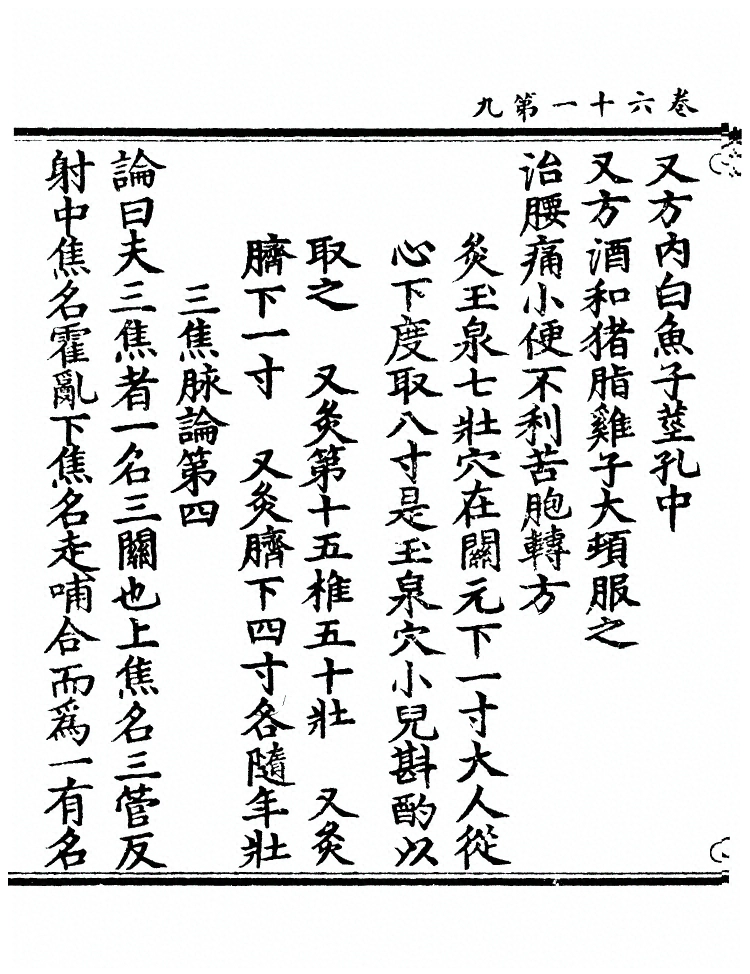 卷六十一第九
又方内白魚子莖孔中
又方酒和猪脂雞子大頓服之
治腰痛小便不利苦胞轉方
灸玉泉七壯穴在關元下一寸大人從
心下度取八寸是玉泉穴小兒斟酌以
取之　又灸第十五椎五十壯　又灸
臍下一寸　又灸臍下四寸各隨年壯
三焦脉論第四
論曰夫三焦者一名三關也上焦名三管反
射中焦名霍亂下焦名走哺合而爲一有名